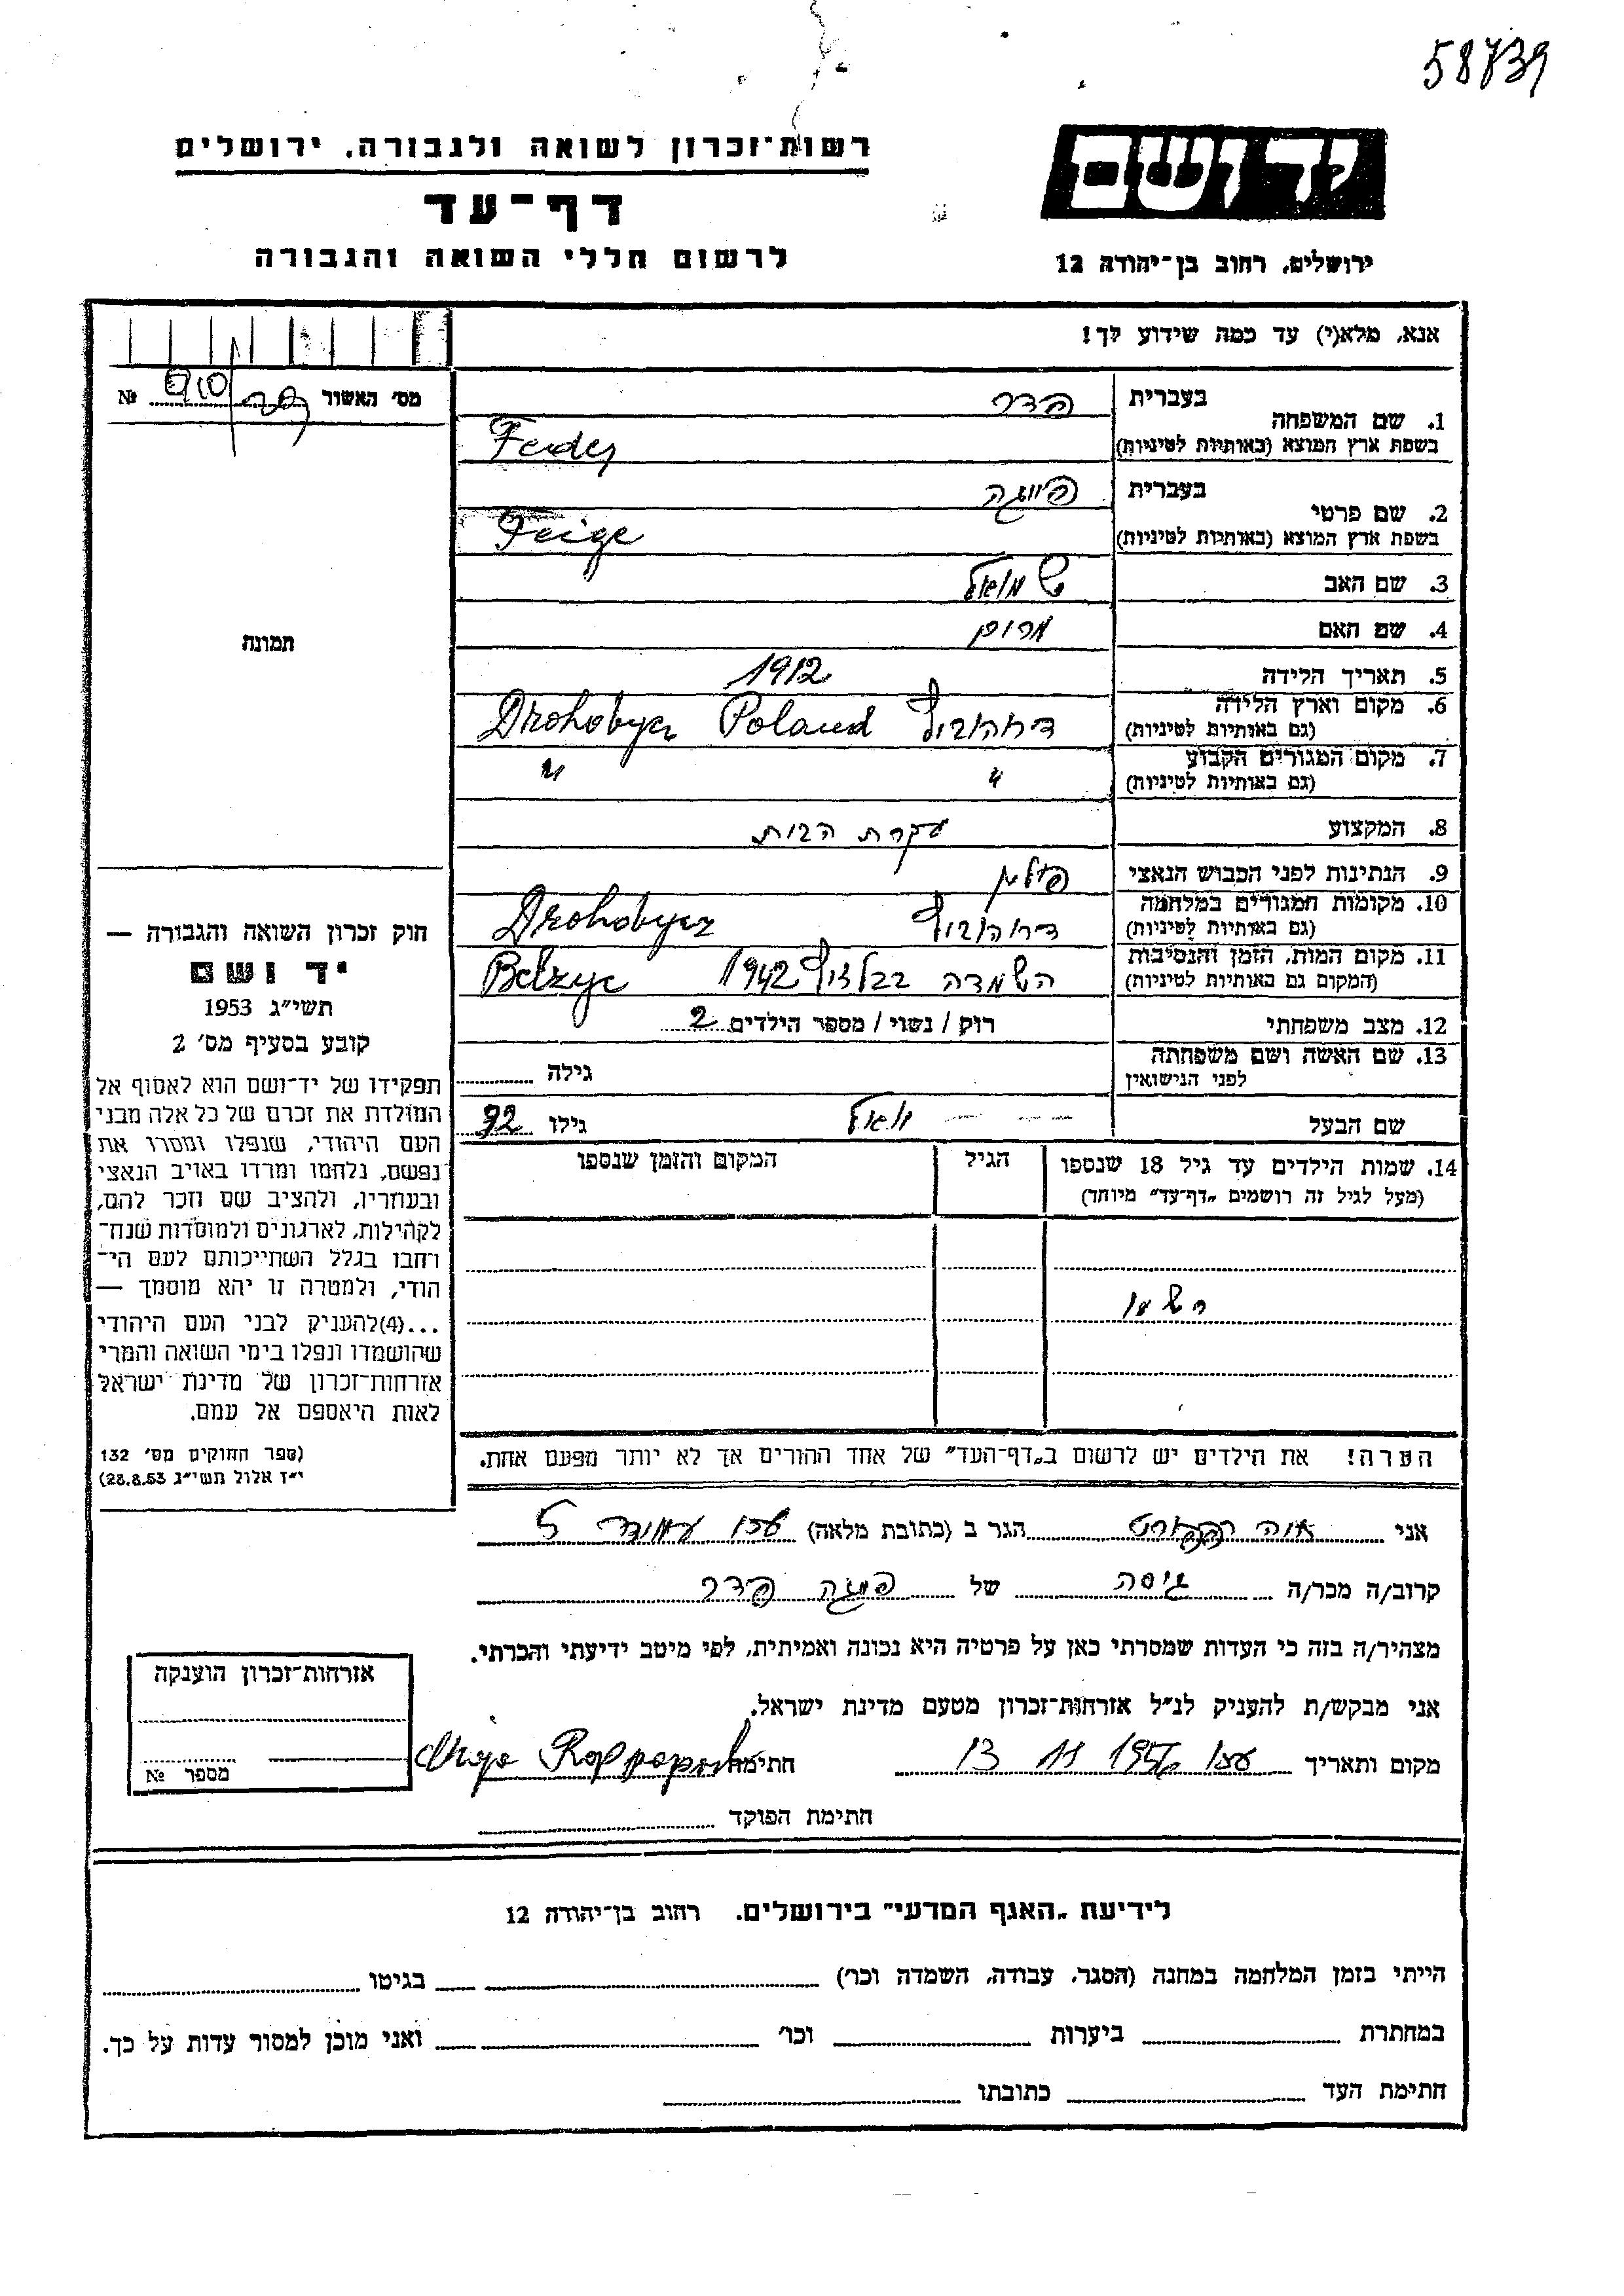 58739
יד ושם
רשות־זכרון לשואה ולגבורה, ירושלים
דף־עד
לרשום חללי השואה והגבורה
ירושלים, רחוב בן־יהודה 12
אנא, מלא(י) עד כמה שידוע לך!
מס' האשור № 910
1. שם המשפחה בעברית פדר
בשפת ארץ המוצא (באותיות לטיניות) Feder
2. שם פרטי בעברית פייגה
בשפת ארץ המוצא (באותיות לטיניות) Feige
3. שם האב שמואל
4. שם האם מרים
תמונה
5. תאריך הלידה 1912
6. מקום וארץ הלידה
(גם באותיות לטיניות) דרוהוביץ Drohobycz Poland
7. מקום המגורים הקבוע
(גם באותיות לטיניות) " "
8. המקצוע עקרת הבית
9. הנתינות לפני הכבוש הנאצי פולין
10. מקומות המגורים במלחמה
(גם באותיות לטיניות) דרוהוביץ Drohobycz
11. מקום המות, הזמן והנסיבות
(המקום גם באותיות לטיניות) השמדה בבלזיץ 1942 Belzyc
12. מצב משפחתי רוק / נשוי / מספר הילדים 2
13. שם האשה ושם משפחתה
לפני הנישואין גילה
שם הבעל יואל גילו 32
14. שמות הילדים עד גיל 18 שנספו הגיל המקום והזמן שנספו
(מעל לגיל זה רושמים „דף־עד" מיוחד)
הערה! את הילדים יש לרשום ב„דף־העד" של אחד ההורים אך לא יותר מפעם אחת.
חוק זכרון השואה והגבורה —
יד ושם
תשי"ג 1953
קובע בסעיף מס' 2
תפקידו של יד־ושם הוא לאסוף אל
המולדת את זכרם של כל אלה מבני
העם היהודי, שנפלו ומסרו את
נפשם, נלחמו ומרדו באויב הנאצי
ובעוזריו, ולהציב שם וזכר להם,
לקהילות, לארגונים ולמוסדות שנח־
רחבו בגלל השתייכותם לעם הי־
הודי, ולמטרה זו יהא מוסמך —
...(4)להעניק לבני העם היהודי
שהושמדו ונפלו בימי השואה והמרי
אזרחות־זכרון של מדינת ישראל
לאות היאספם אל עמם.
(ספר החוקים מס' 132
י"ז אלול תשי"ג 28.8.53)
אני רפפורט הגר ב (כתובת מלאה) עכו עמודר 5
קרוב/ה מכר/ה גיסה של פייגה פדר
מצהיר/ה בזה כי העדות שמסרתי כאן על פרטיה היא נכונה ואמיתית, לפי מיטב ידיעתי והכרתי.
אני מבקש/ת להעניק לנ"ל אזרחות־זכרון מטעם מדינת ישראל.
מקום ותאריך עכו 1956 11 13 חתימה Rappoport
חתימת הפוקד
אזרחות־זכרון הוענקה
מספר №
לידיעת „האגף המדעי" בירושלים. רחוב בן־יהודה 12
הייתי בזמן המלחמה במחנה (הסגר, עבודה, השמדה וכר') בגיטו
במחתרת ביערות וכר' ואני מוכן למסור עדות על כך.
חתימת העד כתובתו